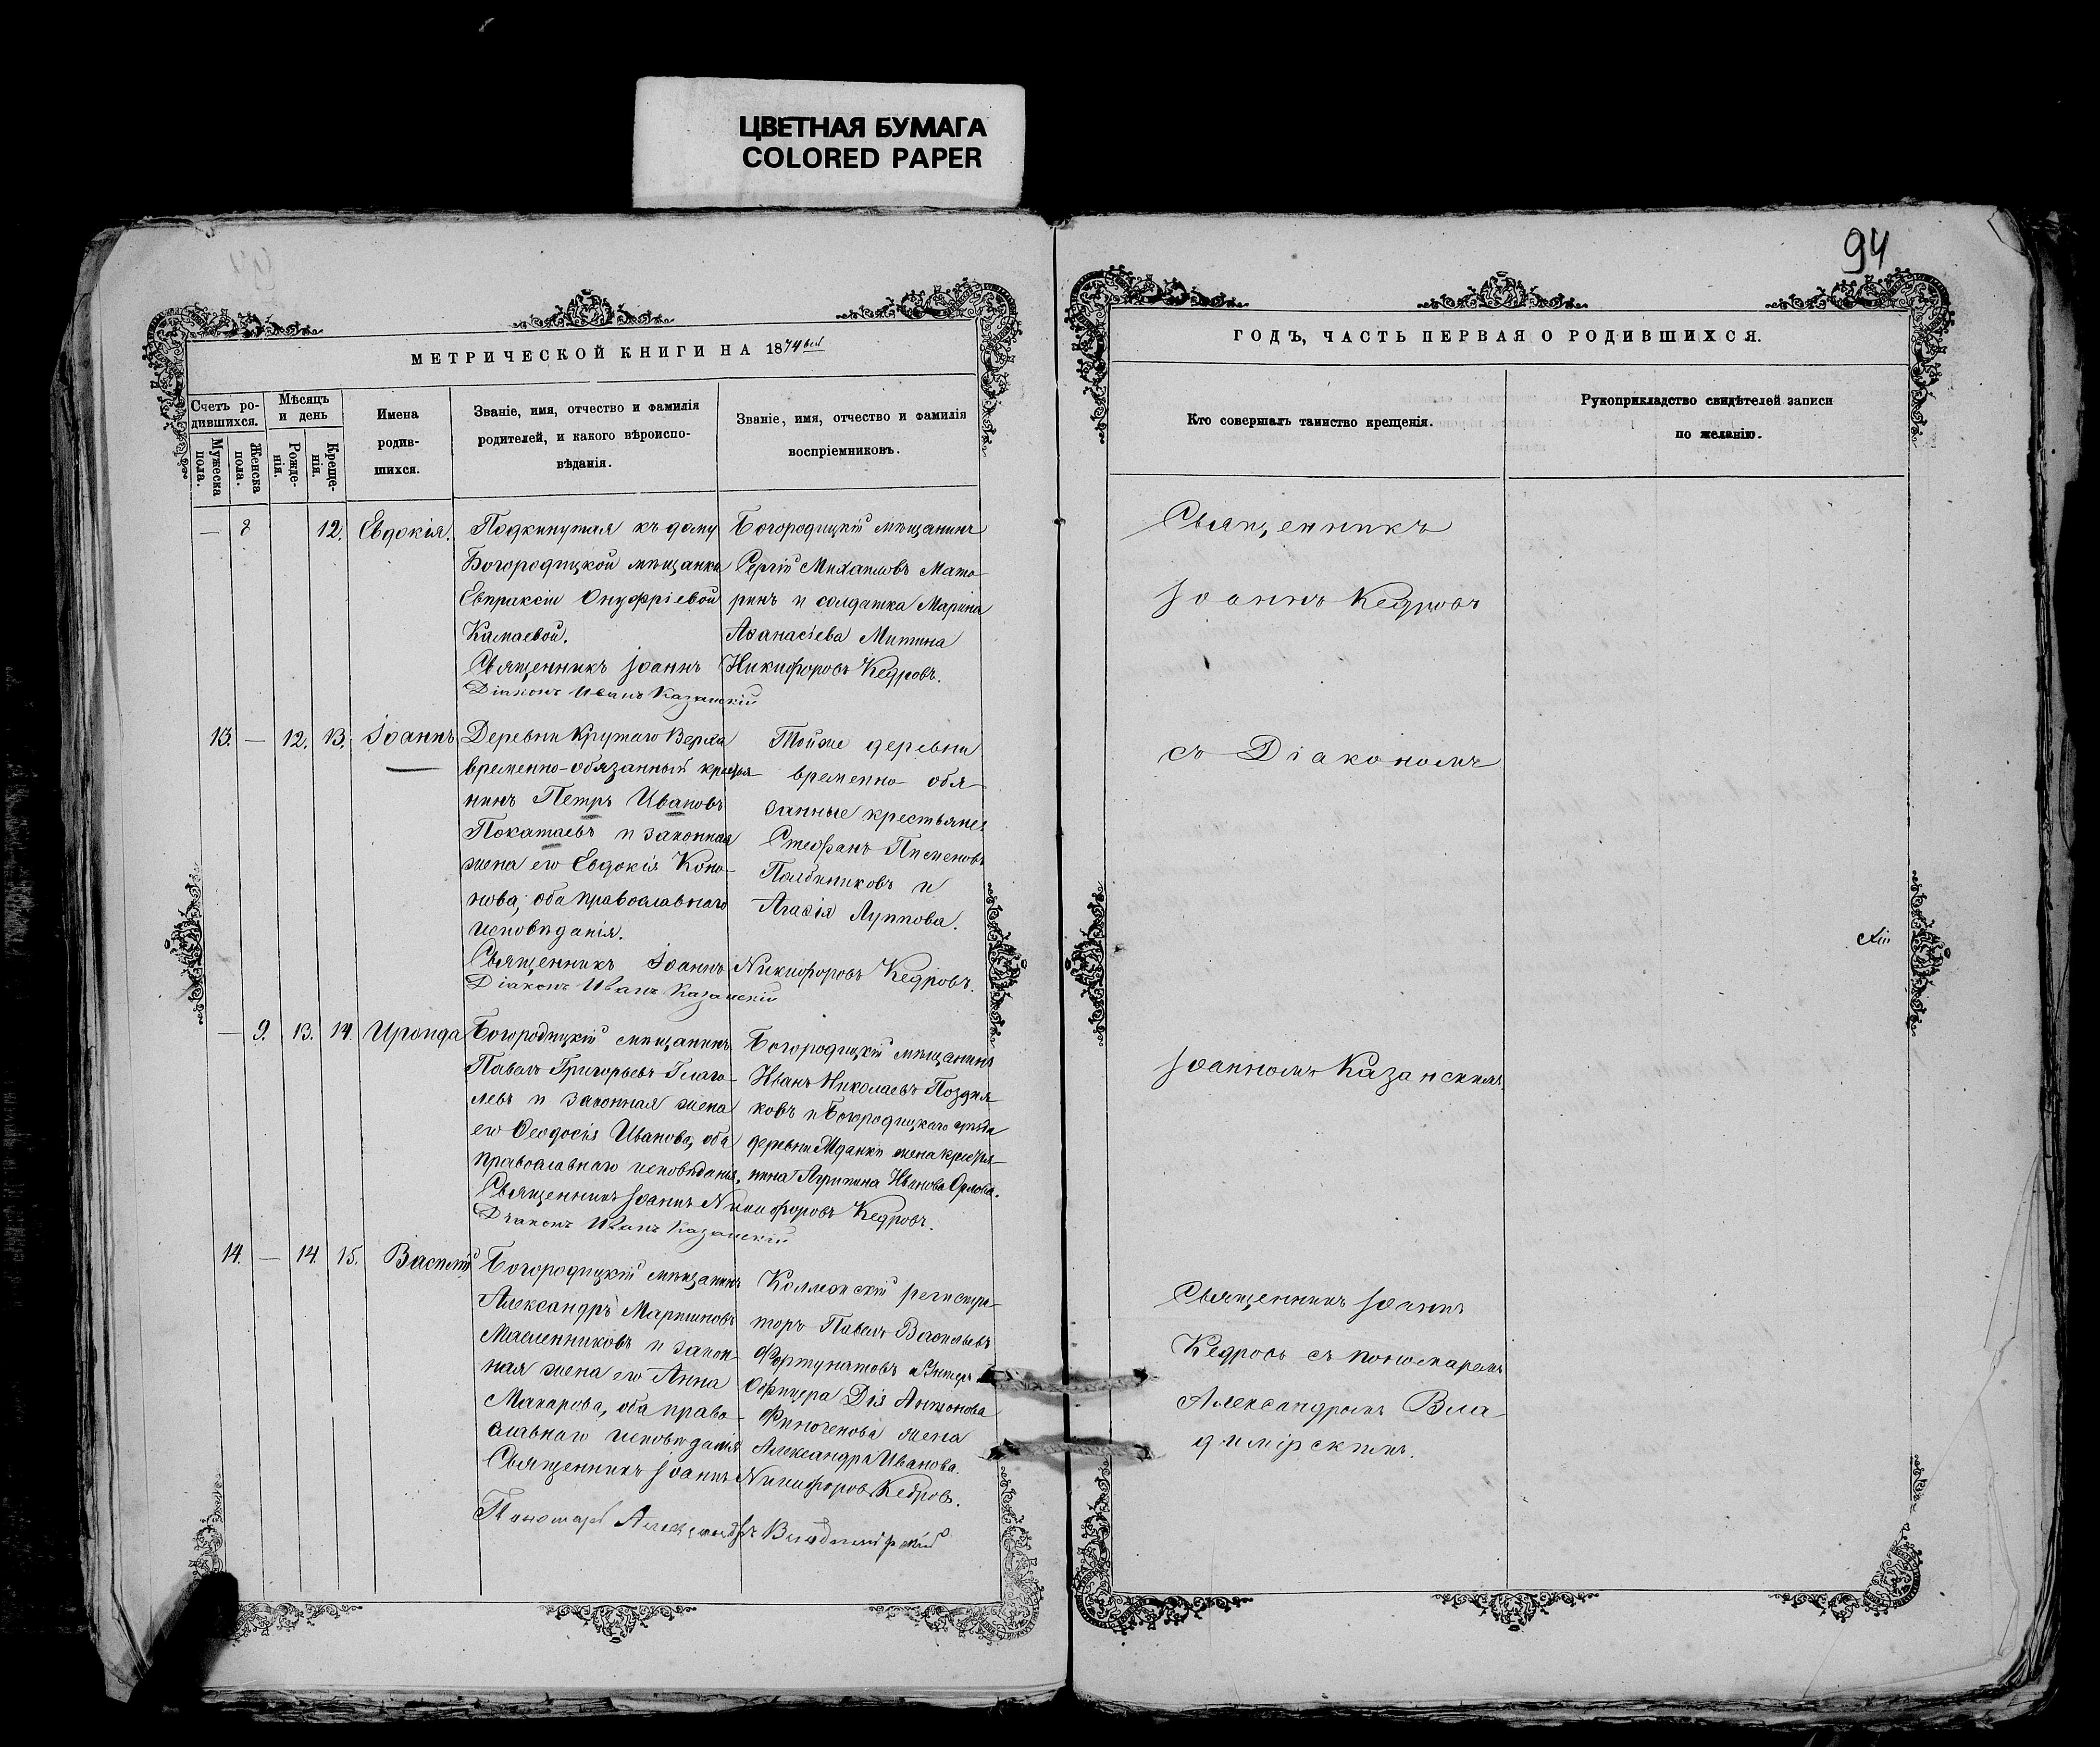 ЦВЕТНАЯ БУМАГА
COLORED PAPER
94
МЕТРИЧЕСКОЙ КНИГИ НА 1874
Счетъ ро-
дившихся.
Мужеска
пола.
Женска
пола.
Мѣсяцъ
и день
Рожде-
нія.
Креще-
нія.
Имена
родив-
шихся.
Званіе, имя, отчество и фамилія
родителей, и какого вѣроиспо-
вѣданія.
Званіе, имя, отчество и фамилія
воспріемниковъ.
— 8 12. Евдокія.
Подкинутая къ дому
Богородицкой мѣщанки
Евпраксіи Онуфріевой
Камаевой.
Богородицкій мѣщанинъ
Сергій Михаиловъ Мато-
ринъ и солдатка Марина
Аѳанасіева Митина
Священникъ Іоаннъ Никифоровъ Кедровъ.
Діаконъ Иванъ Казанскій
13. — 12. 13. Іоаннъ
Деревни Крутаго Верха
временно-обязанный кресья-
нинъ Петръ Ивановъ
Покатаевъ и законная
жена его Евдокія Коно-
нова, оба православнаго
исповѣданія.
Тойже деревни
временно-обя-
занные крестьяне
Стефанъ Пименовъ
и
Агаѳія Луппова.
Священникъ Іоаннъ Никифоровъ Кедровъ.
Діаконъ Иванъ Казанскій
— 9. 13. 14. Ираида
Богородицкій мѣщанинъ
Павелъ Григорьевъ Глаго-
левъ и законная жена
его Ѳеодосія Иванова, оба
православнаго исповѣданія,
Богородицкій мѣщанинъ
Иванъ Николаевъ Поздня-
ковъ и Богородицкаго уѣзда
деревни Жданки жена крестья-
нина Агрипина Иванова Орлова.
Священникъ Іоаннъ Никифоровъ Кедровъ.
Діаконъ Иванъ Казанскій
14. — 14. 15. Василій
Богородицкій мѣщанинъ
Александръ Мартиновъ
Масленниковъ и закон-
ная жена его Анна
Макарова, оба право-
славнаго исповѣданія
Коллежскій регистра-
торъ Павелъ Васильевъ
Фортунатовъ и Унтеръ
Офицера Антонова
Финогенова жена
Александра Иванова.
Священникъ Іоаннъ Никифоровъ Кедровъ.
Пономарь Александръ Владимірскій
ГОДЪ, ЧАСТЬ ПЕРВАЯ О РОДИВШИХСЯ.
Кто совершалъ таинство крещенія.
Рукоприкладство свидѣтелей записи
по желанію.
Священникъ
Іоаннъ Кедровъ
съ Діакономъ
Іоанномъ Казанскимъ
Священникъ Іоаннъ
Кедровъ съ пономаремъ
Александромъ Вла-
димірскимъ.